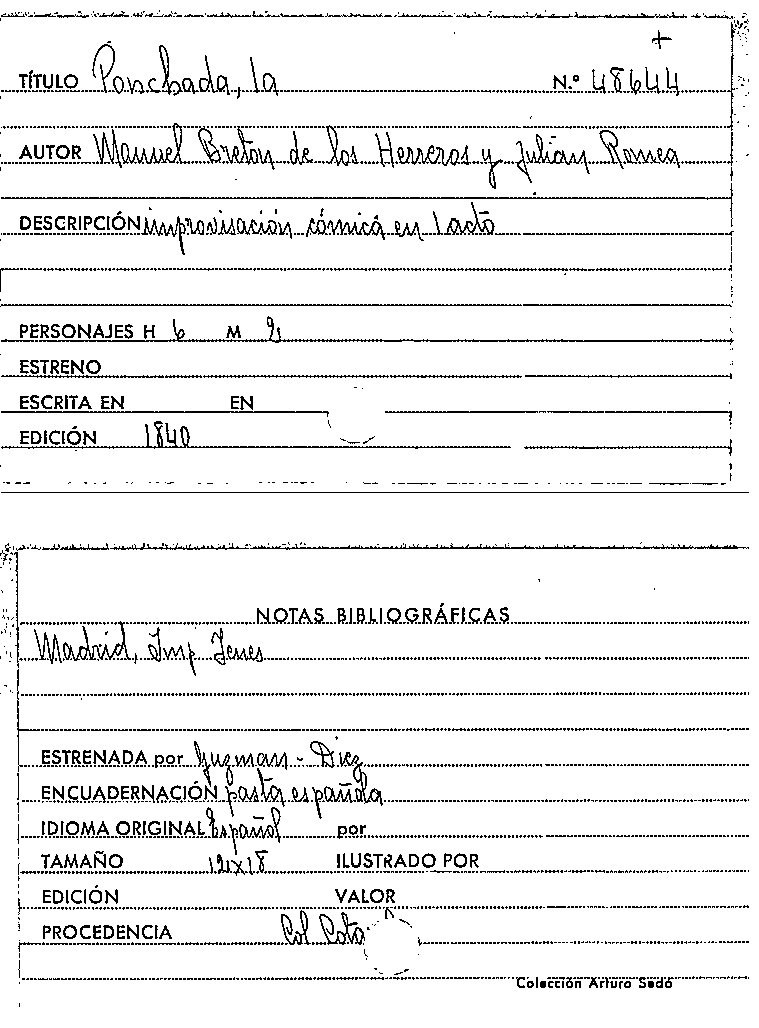 +
TÍTULO Ponchada, la N.º 48644
AUTOR Manuel Breton de los Herreros y Julián Romea
DESCRIPCIÓN improvisación cómica en 1 acto
PERSONAJES H 6 M 2
ESTRENO
ESCRITA EN EN
EDICIÓN 1840
NOTAS BIBLIOGRÁFICAS
Madrid, Imp Yenes
ESTRENADA por Guzman - Diez
ENCUADERNACIÓN pasta española
IDIOMA ORIGINAL Español por
TAMAÑO 12x18 ILUSTRADO POR
EDICIÓN VALOR
PROCEDENCIA Col Cota
Colección Arturo Sedó